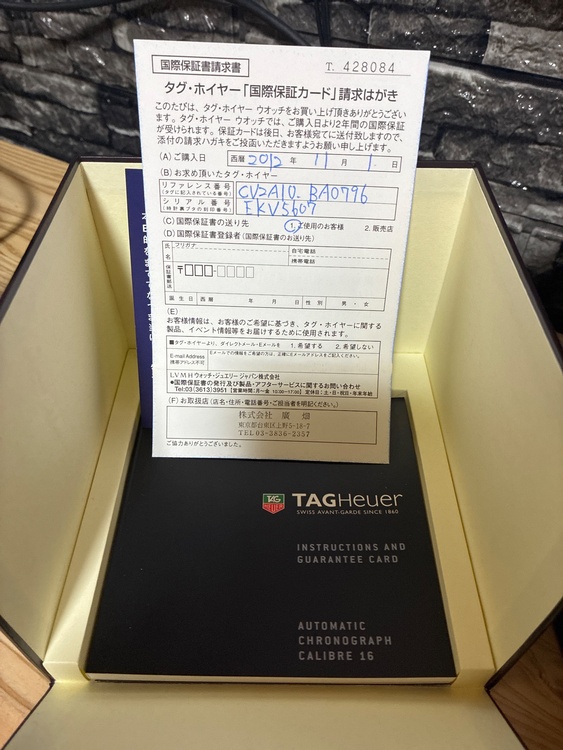 国際保証書請求書
T. 428084
タグ・ホイヤー「国際保証カード」請求はがき
このたびは、タグ・ホイヤー ウオッチをお買い上げ頂きありがとうござい
ます。タグ・ホイヤー ウオッチでは、ご購入日より2年間の国際保証
が受けられます。保証カードは後日、お客様宛てに送付致しますので、
添付の請求ハガキをご投函いただきますようお願い申し上げます。
(A) ご購入日 西暦 2012 年 11 月 1 日
(B) お求め頂いたタグ・ホイヤー
リファレンス番号
(タグに記入されている番号)
CV2A10. BA0796
シリアル番号
(時計裏ブタの刻印番号)
EKV5607
(C) 国際保証書の送り先 1. ご使用のお客様 2. 販売店
(D) 国際保証書登録者(国際保証書のお送り先)
氏名 フリガナ
自宅電話
携帯電話
保証書郵送先 〒
誕生日 西暦 年 月 日 性別 男・女
(E)
お客様情報は、お客様のご希望に基づき、タグ・ホイヤーに関する
製品、イベント情報等をお届けするために使用されます。
■タグ・ホイヤーより、ダイレクトメール・Eメールを 1. 希望する 2. 希望しない
E-mail Address
携帯アドレス不可
Eメールでの情報をご希望の方は、正確にEメールアドレスをご記入ください。
LVMHウォッチ・ジュエリージャパン株式会社
●国際保証書の発行及び製品・アフターサービスに関するお問い合わせ
Tel:03(3613)3951 【営業時間:月〜金 10:00〜17:30】 定休日:土・日・祝日・年末年始
(F) お取扱店 (店名・住所・電話番号・ご担当者を明記ください。)
株式会社 廣畑
東京都台東区上野5-18-7
TEL 03-3836-2357
ご協力ありがとうございました。
TAG
HEUER
TAGHeuer
SWISS AVANT-GARDE SINCE 1860
INSTRUCTIONS AND
GUARANTEE CARD
AUTOMATIC
CHRONOGRAPH
CALIBRE 16